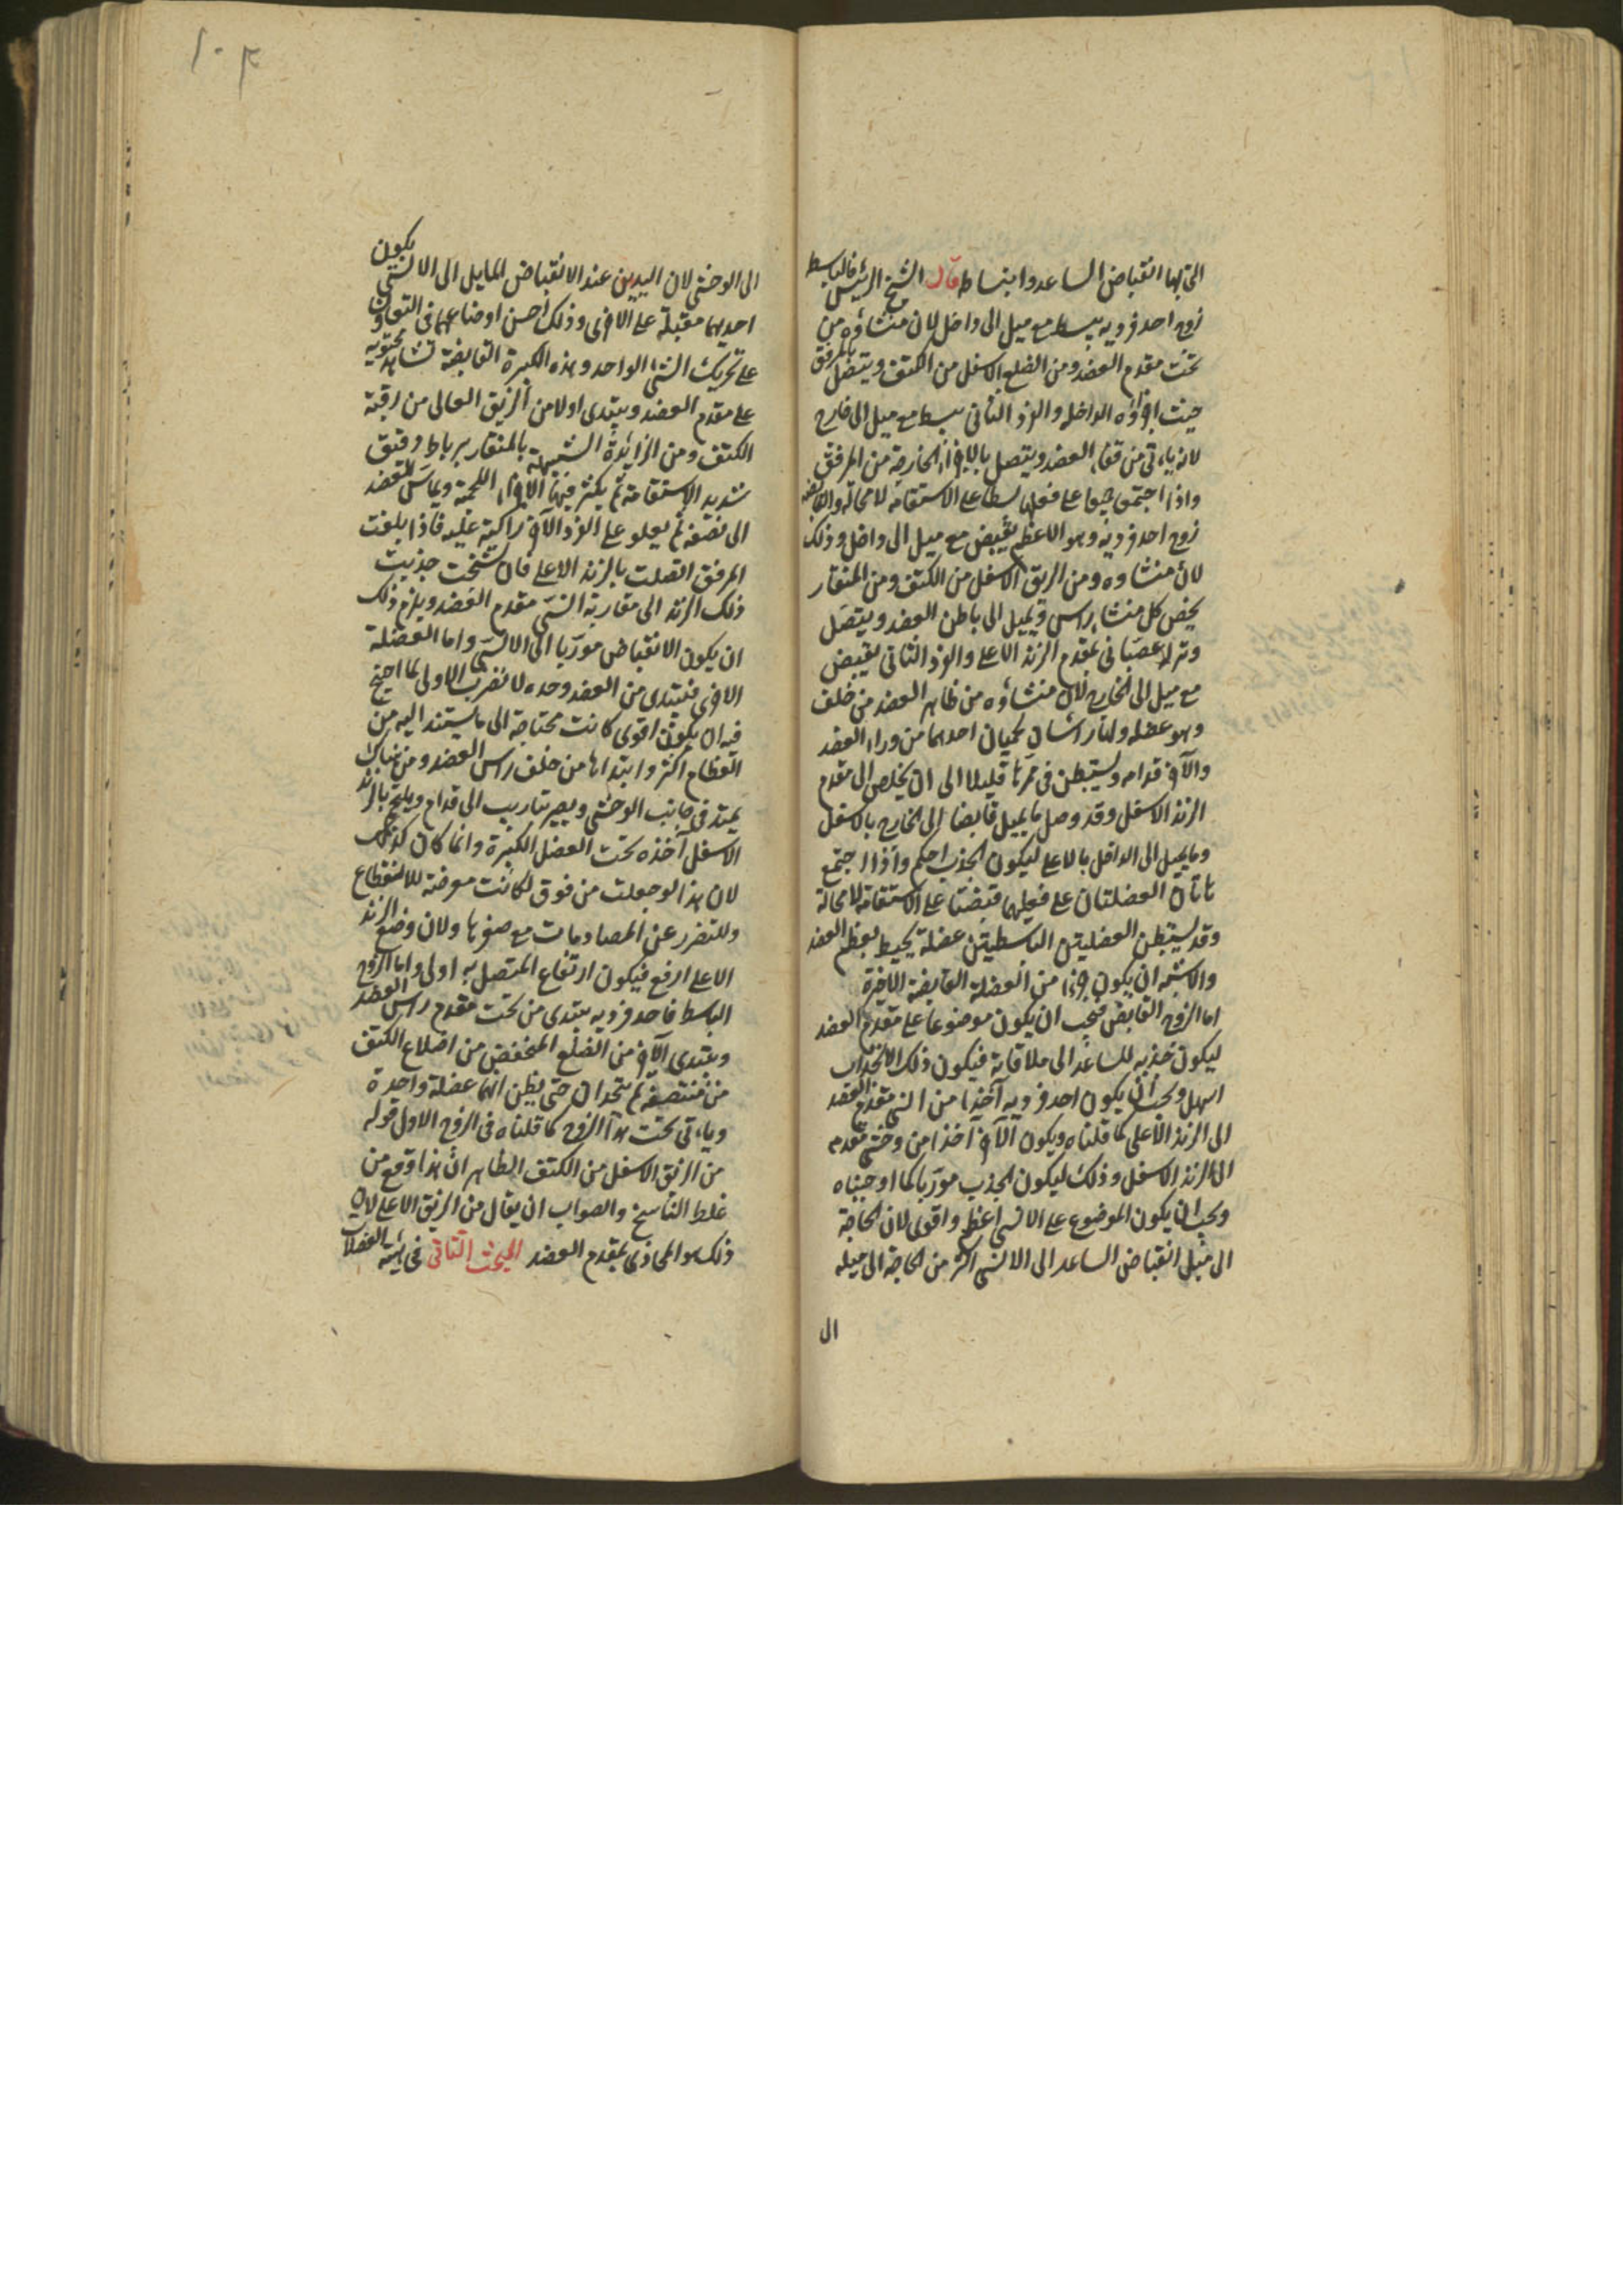 التى بها انقباض الساعد وانبساطه قال الشيخ الرئيس فالباسط
زوج احد فرديه يبسط مع ميل الى داخل لان منشاؤه من
تحت مقدم العضد ومن الضلع الاسفل من الكتف ويتصل بالمرفق
حيث اجزاؤه الداخلة والفرد الثانى يبسط مع ميل الى خارج
لانه ياتى من فقا العضد ويتصل بالاجزاء الخارجة من المرفق
واذا اجتمعا جميعا على فعلهما بسطا على الاستقامة لا محالة والقابضه
زوج احد فرديه وهو الاعظم يقبض مع ميل الى داخل وذلك
لان منشاوه ومن الزيق الاسفل من الكتف ومن المنقار
يخص كل منشا براس ويميل الى باطن العضد ويتصل
وتر له عصبانى بمقدم الزند الاعلى والفرد الثانى يقبض
مع ميل الى الخارج لان منشاؤه من ظاهر العضد من خلف
وهو عضله ولها راسان لحميان احدهما من وراء العضد
والآخر قدامه ويستبطن فى ممرها قليلا الى ان يخلص الى مقدم
الزند الاسفل وقد وصل ما يميل قابضا الى الخارج بالاسفل
وما يميل الى الداخل بالاعلى ليكون الجذب احكم واذا اجتمع
هاتان العضلتان على فعليهما قبضتا على الاستقامة لا محالة
وقد يستبطن العضليتين الباسطيتين عضلة يحيط بعظم العضد
والاشبه ان يكون جزءا من العضلة القابضة الاخيرة
اما الزوج القابض فيجب ان يكون موضوعا على مقدم العضد
ليكون جذبه للساعد الى ملاقاته فيكون ذلك الانجذاب
اسهل ويجب ان يكون احد فرديه آخذا من انسى مقدم العضد
الى الزند الاعلى كما قلناه ويكون الآخر آخذا من وحشى مقدمه
الى الزند الاسفل وذلك ليكون الجذب موربا لما اوجبناه
ويجب ان يكون الموضوع على الانسى اعظم واقوى لان الحاجة
الى ميل انقباض الساعد الى الانسى اكثر من الحاجة الى ميله
ال
١٠٣
الى الوحشى لان اليدين عند الانقباض المايل الى الانسى يكون
احديهما مقبلة على الاخرى وذلك احسن اوضاعهما فى التعاون
على تحريك الشئ الواحد وهذه الكبيرة القابضة تشاهد محتويه
على مقدم العضد ويبتدى اولا من الزيق العالى من رقبة
الكتف ومن الزايدة الشبيهة بالمنقار برباط دقيق
شديد الاستقامة ثم يكثر فيهما الاجزاء اللحمية ويماس للعضد
الى نصفه ثم يعلو على الفرد الآخر راكبة عليه فاذا بلغت
المرفق اتصلت بالزند الاعلى فان تشنجت جذبت
ذلك الزند الى مقاربة انسى مقدم العضد ويلزم ذلك
ان يكون الانقباض موربا الى الانسى واما العضلة
الاخرى فيبتدى من العضد وحده لانفرب الاولى لما احتيج
فيه ان يكون اقوى كانت محتاجة الى ما يستند اليه من
العظام اكثر وابتداها من خلف راس العضد ومن هناك
يمتد فى جانب الوحشى ويصير بتاريب الى قدام ويلتحم بالزند
الاسفل آخذه تحت العضل الكبيرة وانما كان كذلك
لان هذا لو جعلت من فوق لكانت معرضة للانقطاع
وللتضرر عن المصادمات مع صغرها ولان وضع الزند
الاعلى ارفع فيكون ارتفاع المتصل به اولى واما الزوج
الباسط فاحد فرديه يبتدى من تحت مقدم راس العضد
ويبتدى الآخر من الضلع المنخفض من اضلاع الكتف
من منتصفه ثم يتحدان حتى يظن انهما عضلة واحدة
وياتى تحت هذا الزوج كما قلناه فى الزوج الاول قوله
من الزيق الاسفل من الكتف الظاهر ان هذا وقع من
غلط الناسخ والصواب ان يقال من الزيق الاعلى لان
ذلك هو المحاذى لمقدم العضد المبحث الثانى فى هيئة العضلات